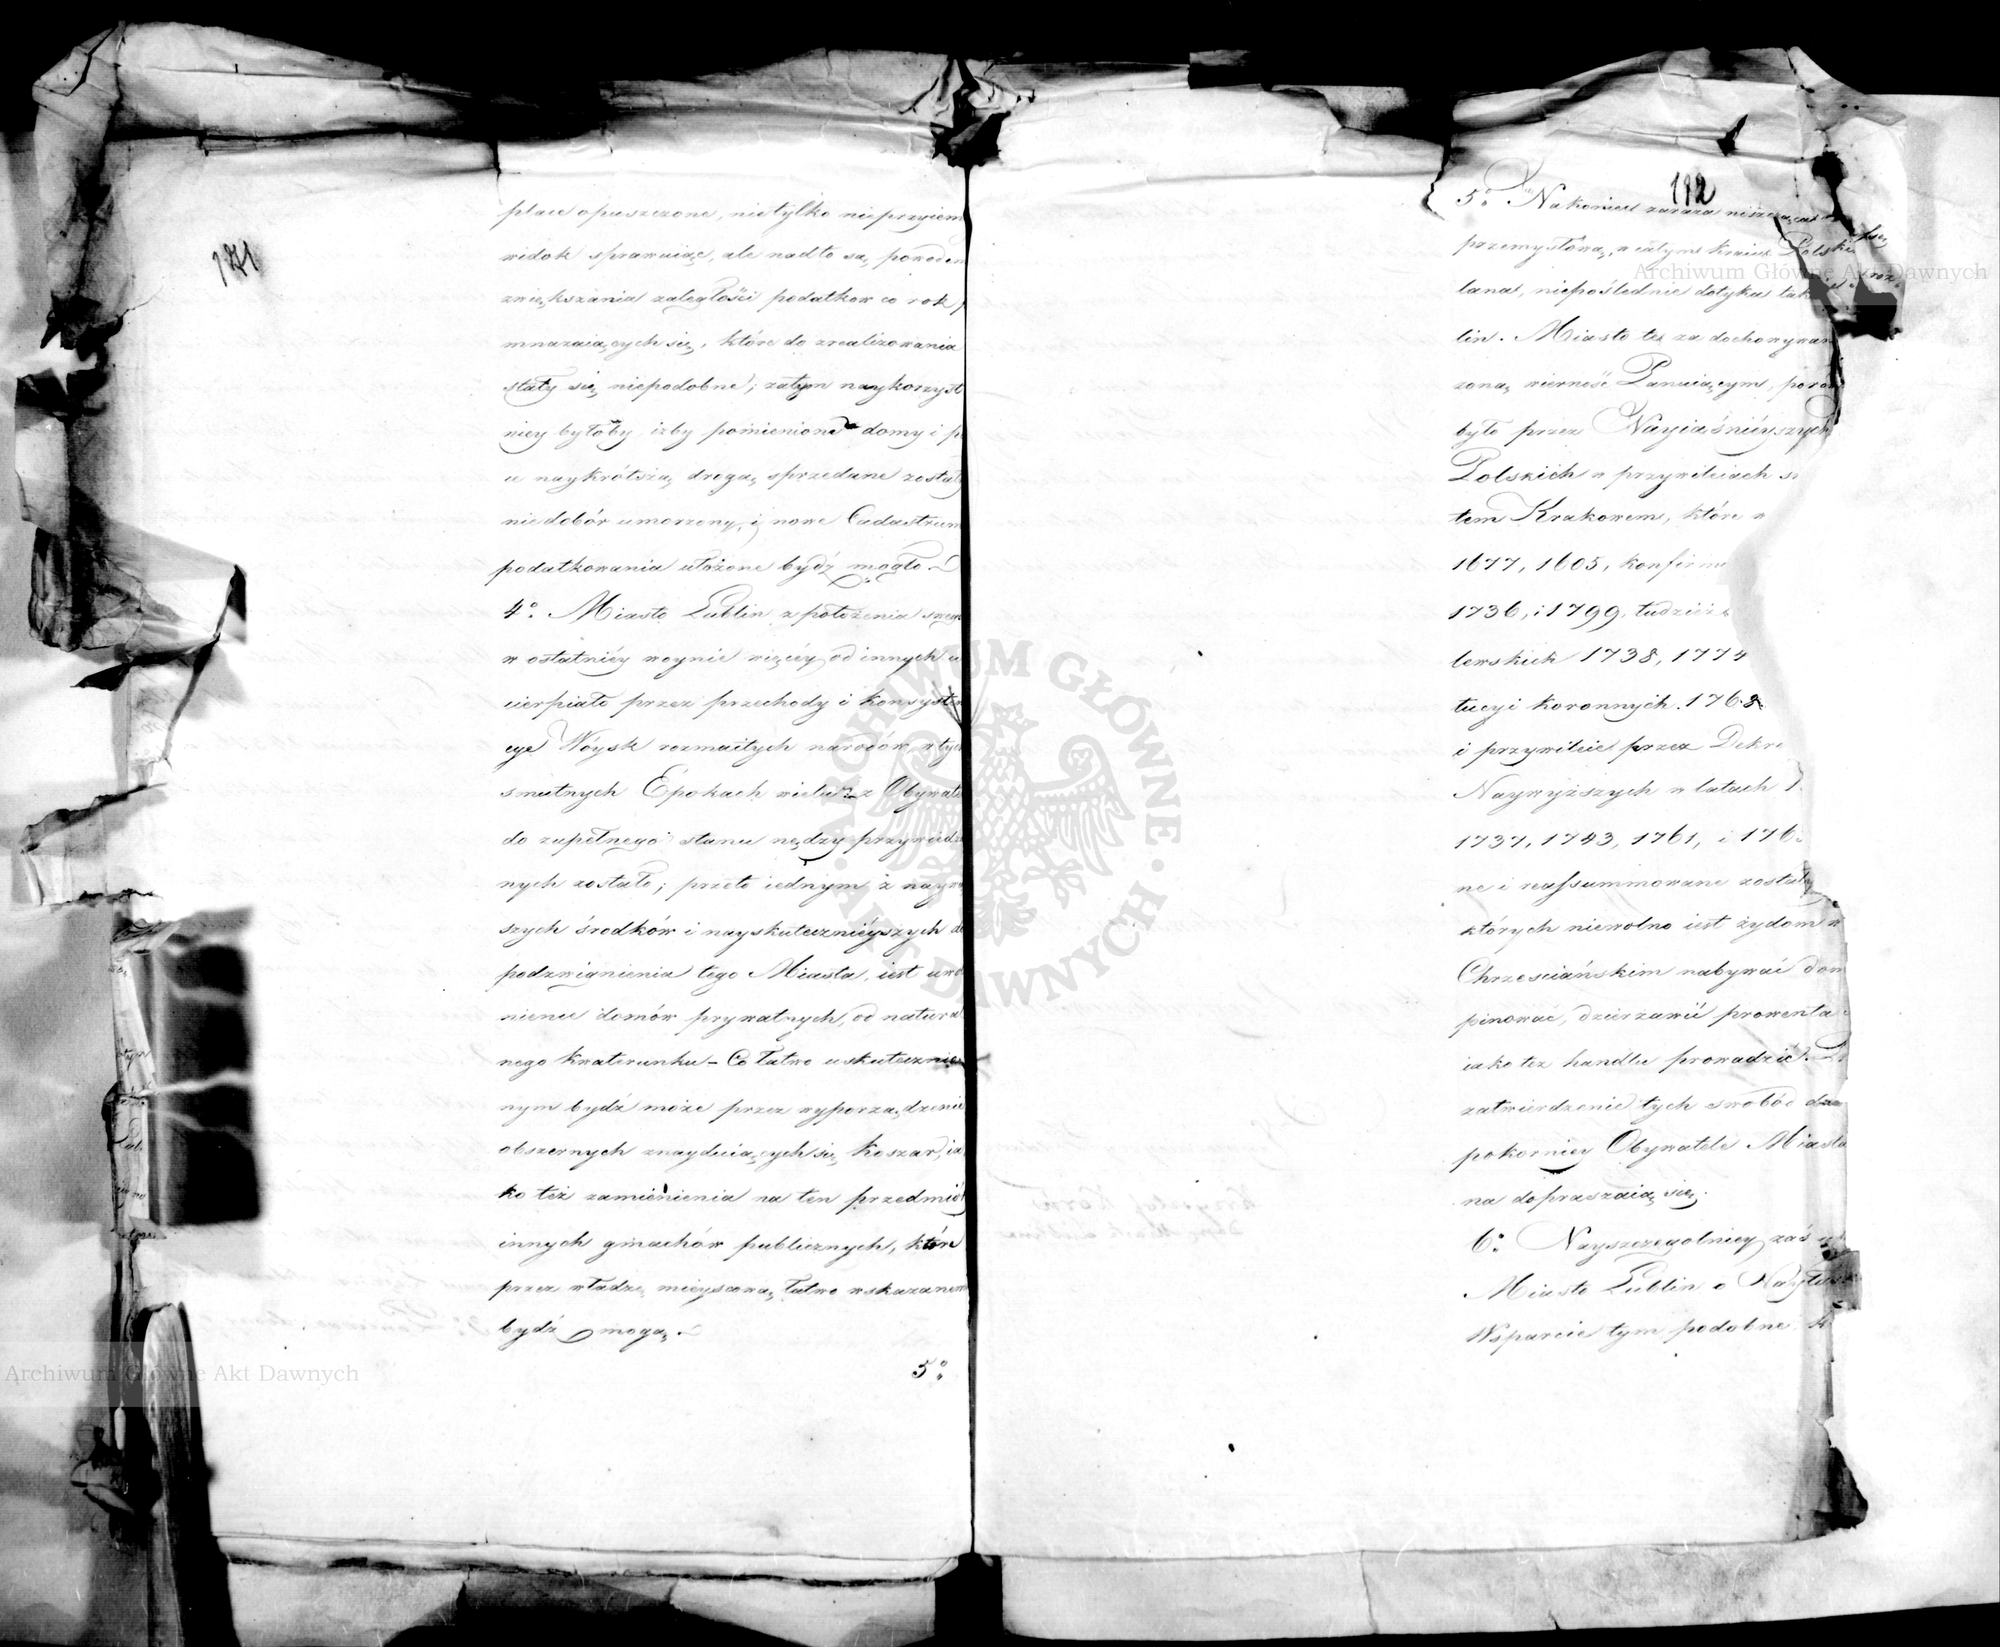 171
place opuszczone, nietylko nieprzyiem
widok sprawuiąc, ale nadto są, powodem
zwiększania zaległości podatkow co rok
mnazaiących się, które do zrealizowania
stały się niepodobne; zatym naykorzyst
niey byłoby izby pomienione domy i p
u naykrótszą drogą, sprzedane zostały
niedobór umorzony, i nowe Cadastrum
podatkowania ułożone bydź mogło
4° Miasto Lublin z położenia swego
w ostatniéy woynie więcéy od innych u
cierpiało przez przechody i konsysten
cye Woysk rozmaitych narodów, w tych
smutnych Epokach wielu z Obywate
do zupełnego stanu nędzy przywiedzio
nych zostało; przeto iednym z nayw
szych środków i nayskutecznieyszych do
podzwignienia tego Miasta, iest uwol
nienie domów prywatnych, od natural
nego kwaterunku – Co łatwo uskutecznio
nym bydź może przez wyporządzenie
obszernych znayduiących się Koszar, ia
ko też zamienienia na ten przedmiot
innych gmachów publicznych, które
przez władzę mieyscową łatwo wskazanemi
bydź mogą.
5°
172
5° Nakoniec zaraza niszcząca
przemysłową, w całym kraiu Polskim
lana, niepoślednie dotyka tak
lin. Miasto te za dochowywan
zoną wierność Panuiącym, porów
było przez Nayiaśnieyszych
Polskich w przywileiach s
tem Krakowem, które w
1677, 1605, konfirmo
1736, i 1799, tudzież
lewskich 1738, 1774
tucyi koronnych. 1768
i przywileie przez Dekre
Naywyższych w latach 1
1737, 1743, 1761, i 176
ne i reassummowane zostały
których niewolno iest żydom w
Chrześciańskim nabywać dom
pinować, dzierżawić prowenta
iako też handlu prowadzić.
zatwierdzenie tych swobód
pokorniey Obywatele Miasta
na dopraszaią się.
6° Nayszczegolniey zaś
Miasto Lublin o Nayłask
Wsparcie tym podobne
Archiwum Główne Akt Dawnych
Archiwum Główne Akt Dawnych
ARCHIWUM GŁÓWNE · AKT DAWNYCH ·